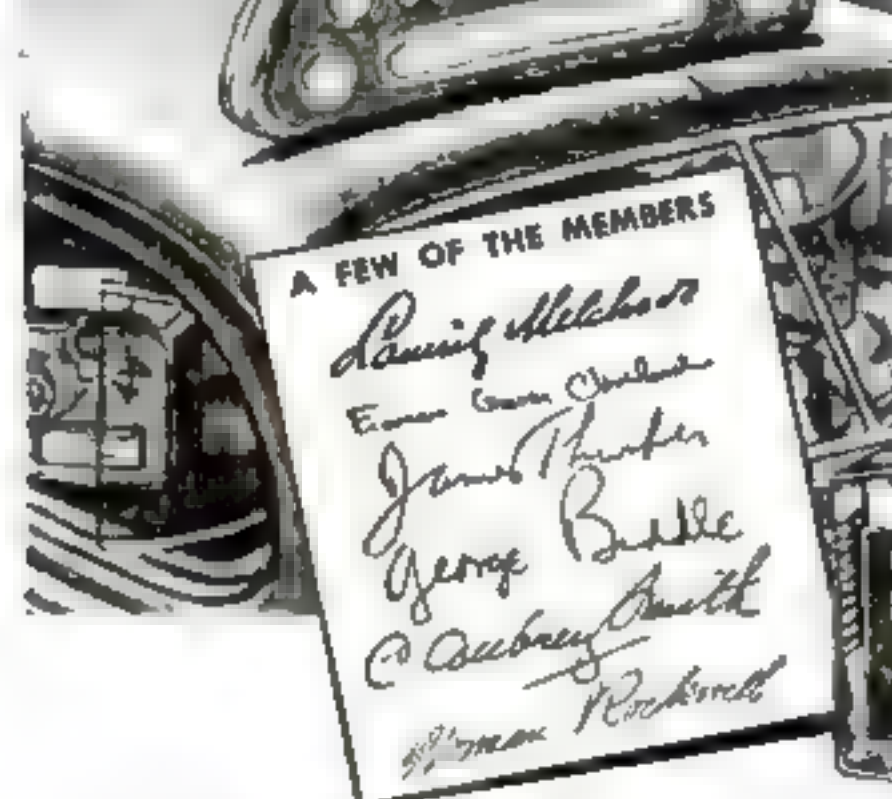 A FEW OF THE MEMBERS
Lauritz Melchior
James Thurber
George Biddle
C Aubrey Smith
Norman Rockwell